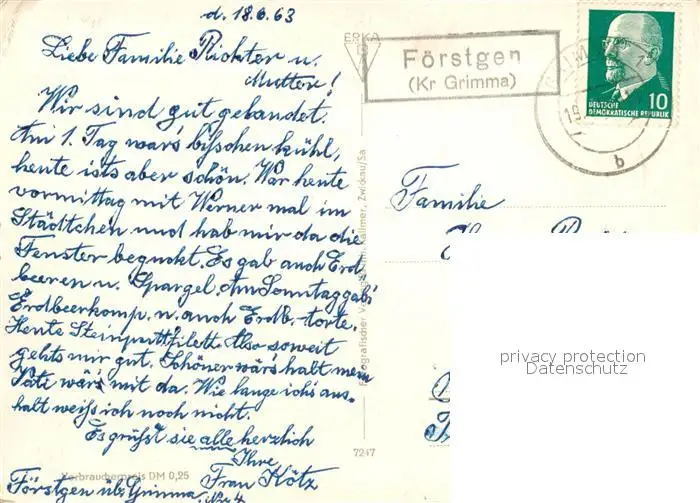 d. 18.6.63
Liebe Familie Richter u.
Mutter!
Wir sind gut gelandet.
Am 1. Tag wars bißchen kühl,
heute ists aber schön. War heute
vormittag mit Werner mal im
Städtchen und hab mir da die
Fenster beguckt. Es gab auch Erd
beeren u. Spargel. Am Sonntag gab's
Erdbeerkomp. u. auch Erdb.-torte.
Heute Steinfilett. Also soweit
gehts mir gut. Schöner wärs halt wenn
Vati wär mit da. Wie lange ichs aus-
halt weiss ich noch nicht.
Es grüßt sie alle herzlich
Ihre
Frau Kötz
Förstgen üb. Grimma
Nr. 4
Verbraucherpreis DM 0,25
EROKA
7247
Förstgen
(Kr Grimma)
b
DEUTSCHE
DEMOKRATISCHE REPUBLIK
10
Familie
privacy protection
Datenschutz